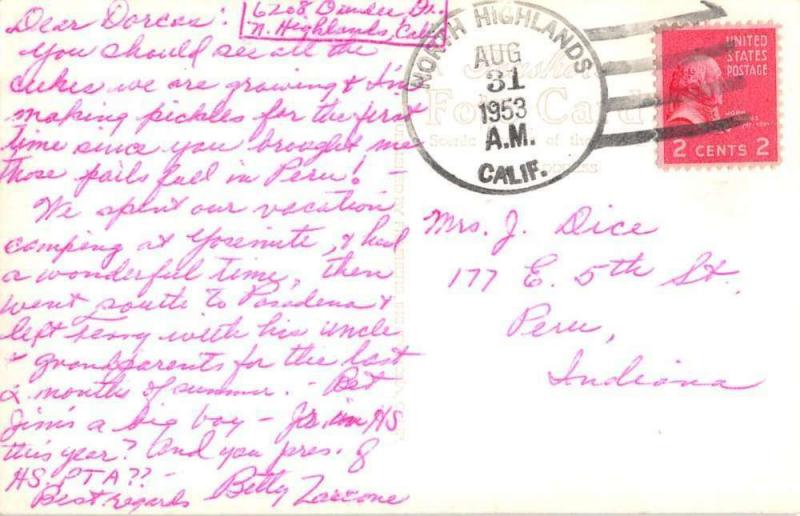 Dear Dorcas:
6208 Dr.
N. Highlands, Calif.
You should see all the
cukes we are growing & I'm
making pickles for the first
time since you brought me
those pails full in Peru! -
We spent our vacation
camping at Yosemite, & had
a wonderful time, then
went south to Pasadena &
left with his uncle
& grandparents for the last
2 months of summer. - Bet
Jim's a big boy - Jr. in HS
this year? And you pres. of
HS. PTA?? -
Best regards Betty Zarcone
NORTH HIGHLANDS
AUG
31
1953
A.M.
CALIF.
UNITED
STATES
POSTAGE
2 CENTS 2
Post Card
Mrs. J. Dice
177 E. 5th St.
Peru,
Indiana